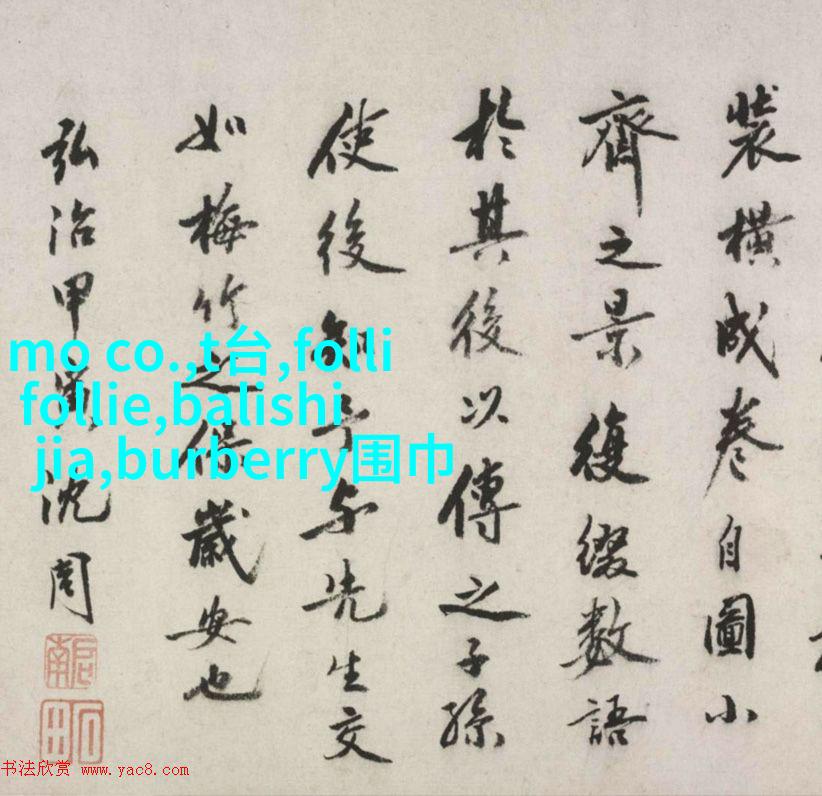 裝橫成卷自圖小
齊之景復綴數語
於其後以傳之子孫
使後知予与先生交
如梅竹之保歲安也
弘治甲寅沈周
啟南
石田
mo co.,t台,folli
follie,balishi
jia,burberry围巾
书法欣赏 www.yac8.com